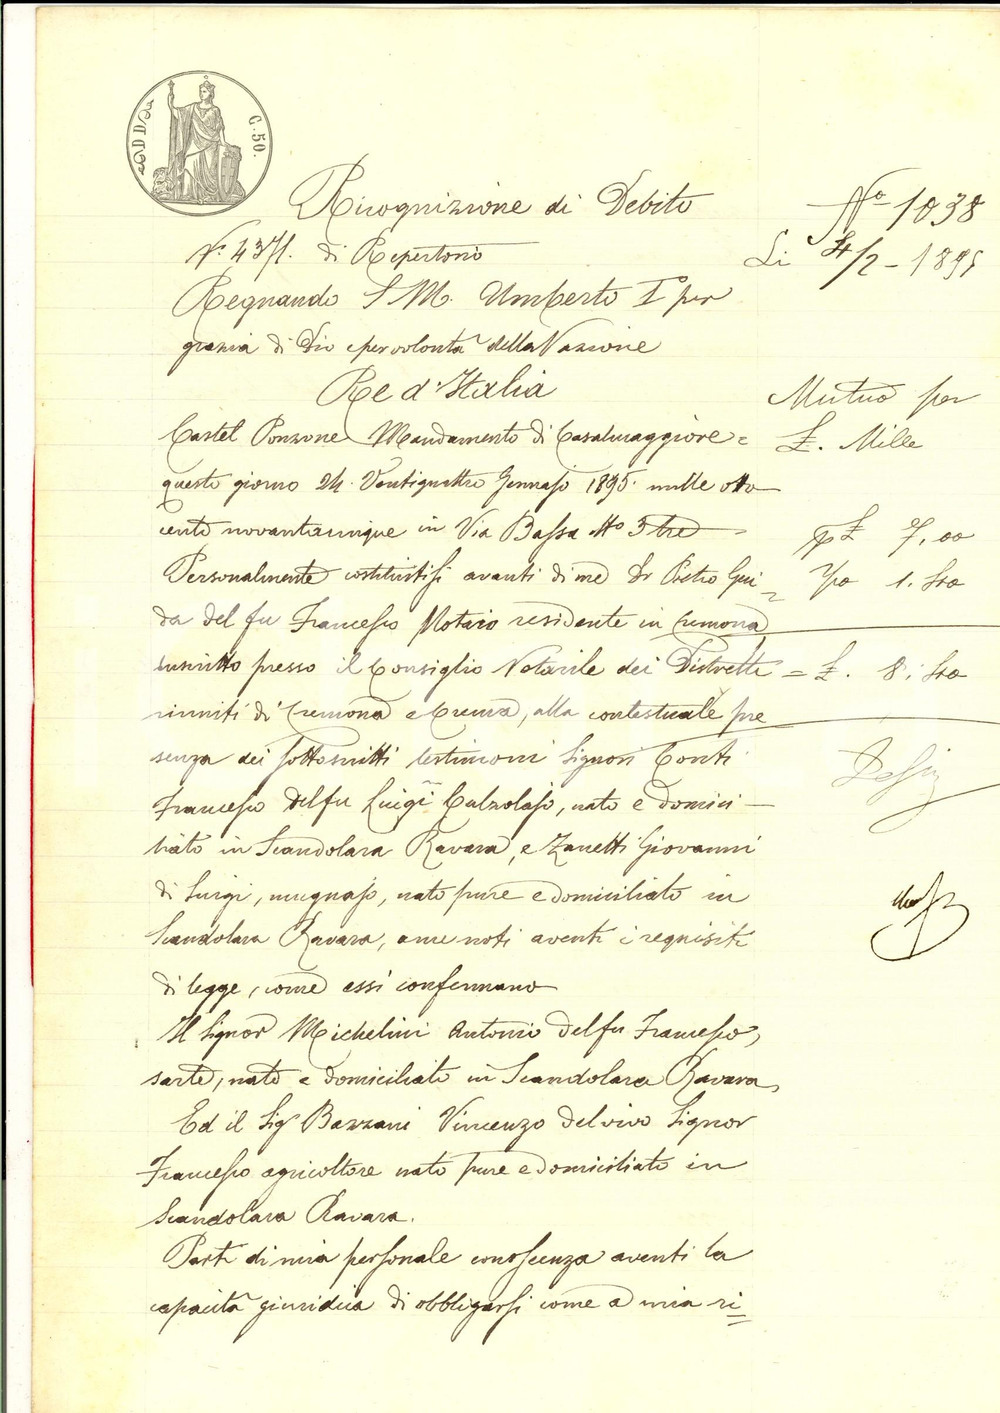 C. 50.
Ricognizione di Debito
N.° 4371. di Repertorio
Regnando S. M. Umberto I° per
grazia di Dio e per volontà della Nazione
Re d'Italia
Castel Ponzone Mandamento di Casalmaggiore =
questo giorno 24. Ventiquattro Gennajo 1895. mille otto
cento novantacinque in Via Bassa N° 3 tre
Personalmente costituitisi avanti di me Dr Pietro Gui
da del fu Francesco Notaro residente in Cremona
inscritto presso il Consiglio Notarile dei Distretti
riuniti di Cremona e Crema, alla contestuale pre
senza dei sottoscritti testimoni Signori Conti
Francesco del fu Luigi Calzolajo, nato e domici
liato in Scandolara Ravara, e Zanetti Giovanni
di Luigi, mugnajo, nato pure e domiciliato in
Scandolara Ravara, a me noti aventi i requisiti
di legge, come essi confermano
Il Signor Michelini Antonio del fu Francesco,
sarto, nato e domiciliato in Scandolara Ravara,
Ed il Sigr Bazzani Vincenzo del vivo Signor
Francesco agricoltore nato pure e domiciliato in
Scandolara Ravara.
Parti di mia personale conoscenza aventi la
capacità giuridica di obbligarsi come a mia ri=
N° 1038
Li 4/2 - 1895
Mutuo per
£. Mille
£ 7,00
1.
= £. 8.